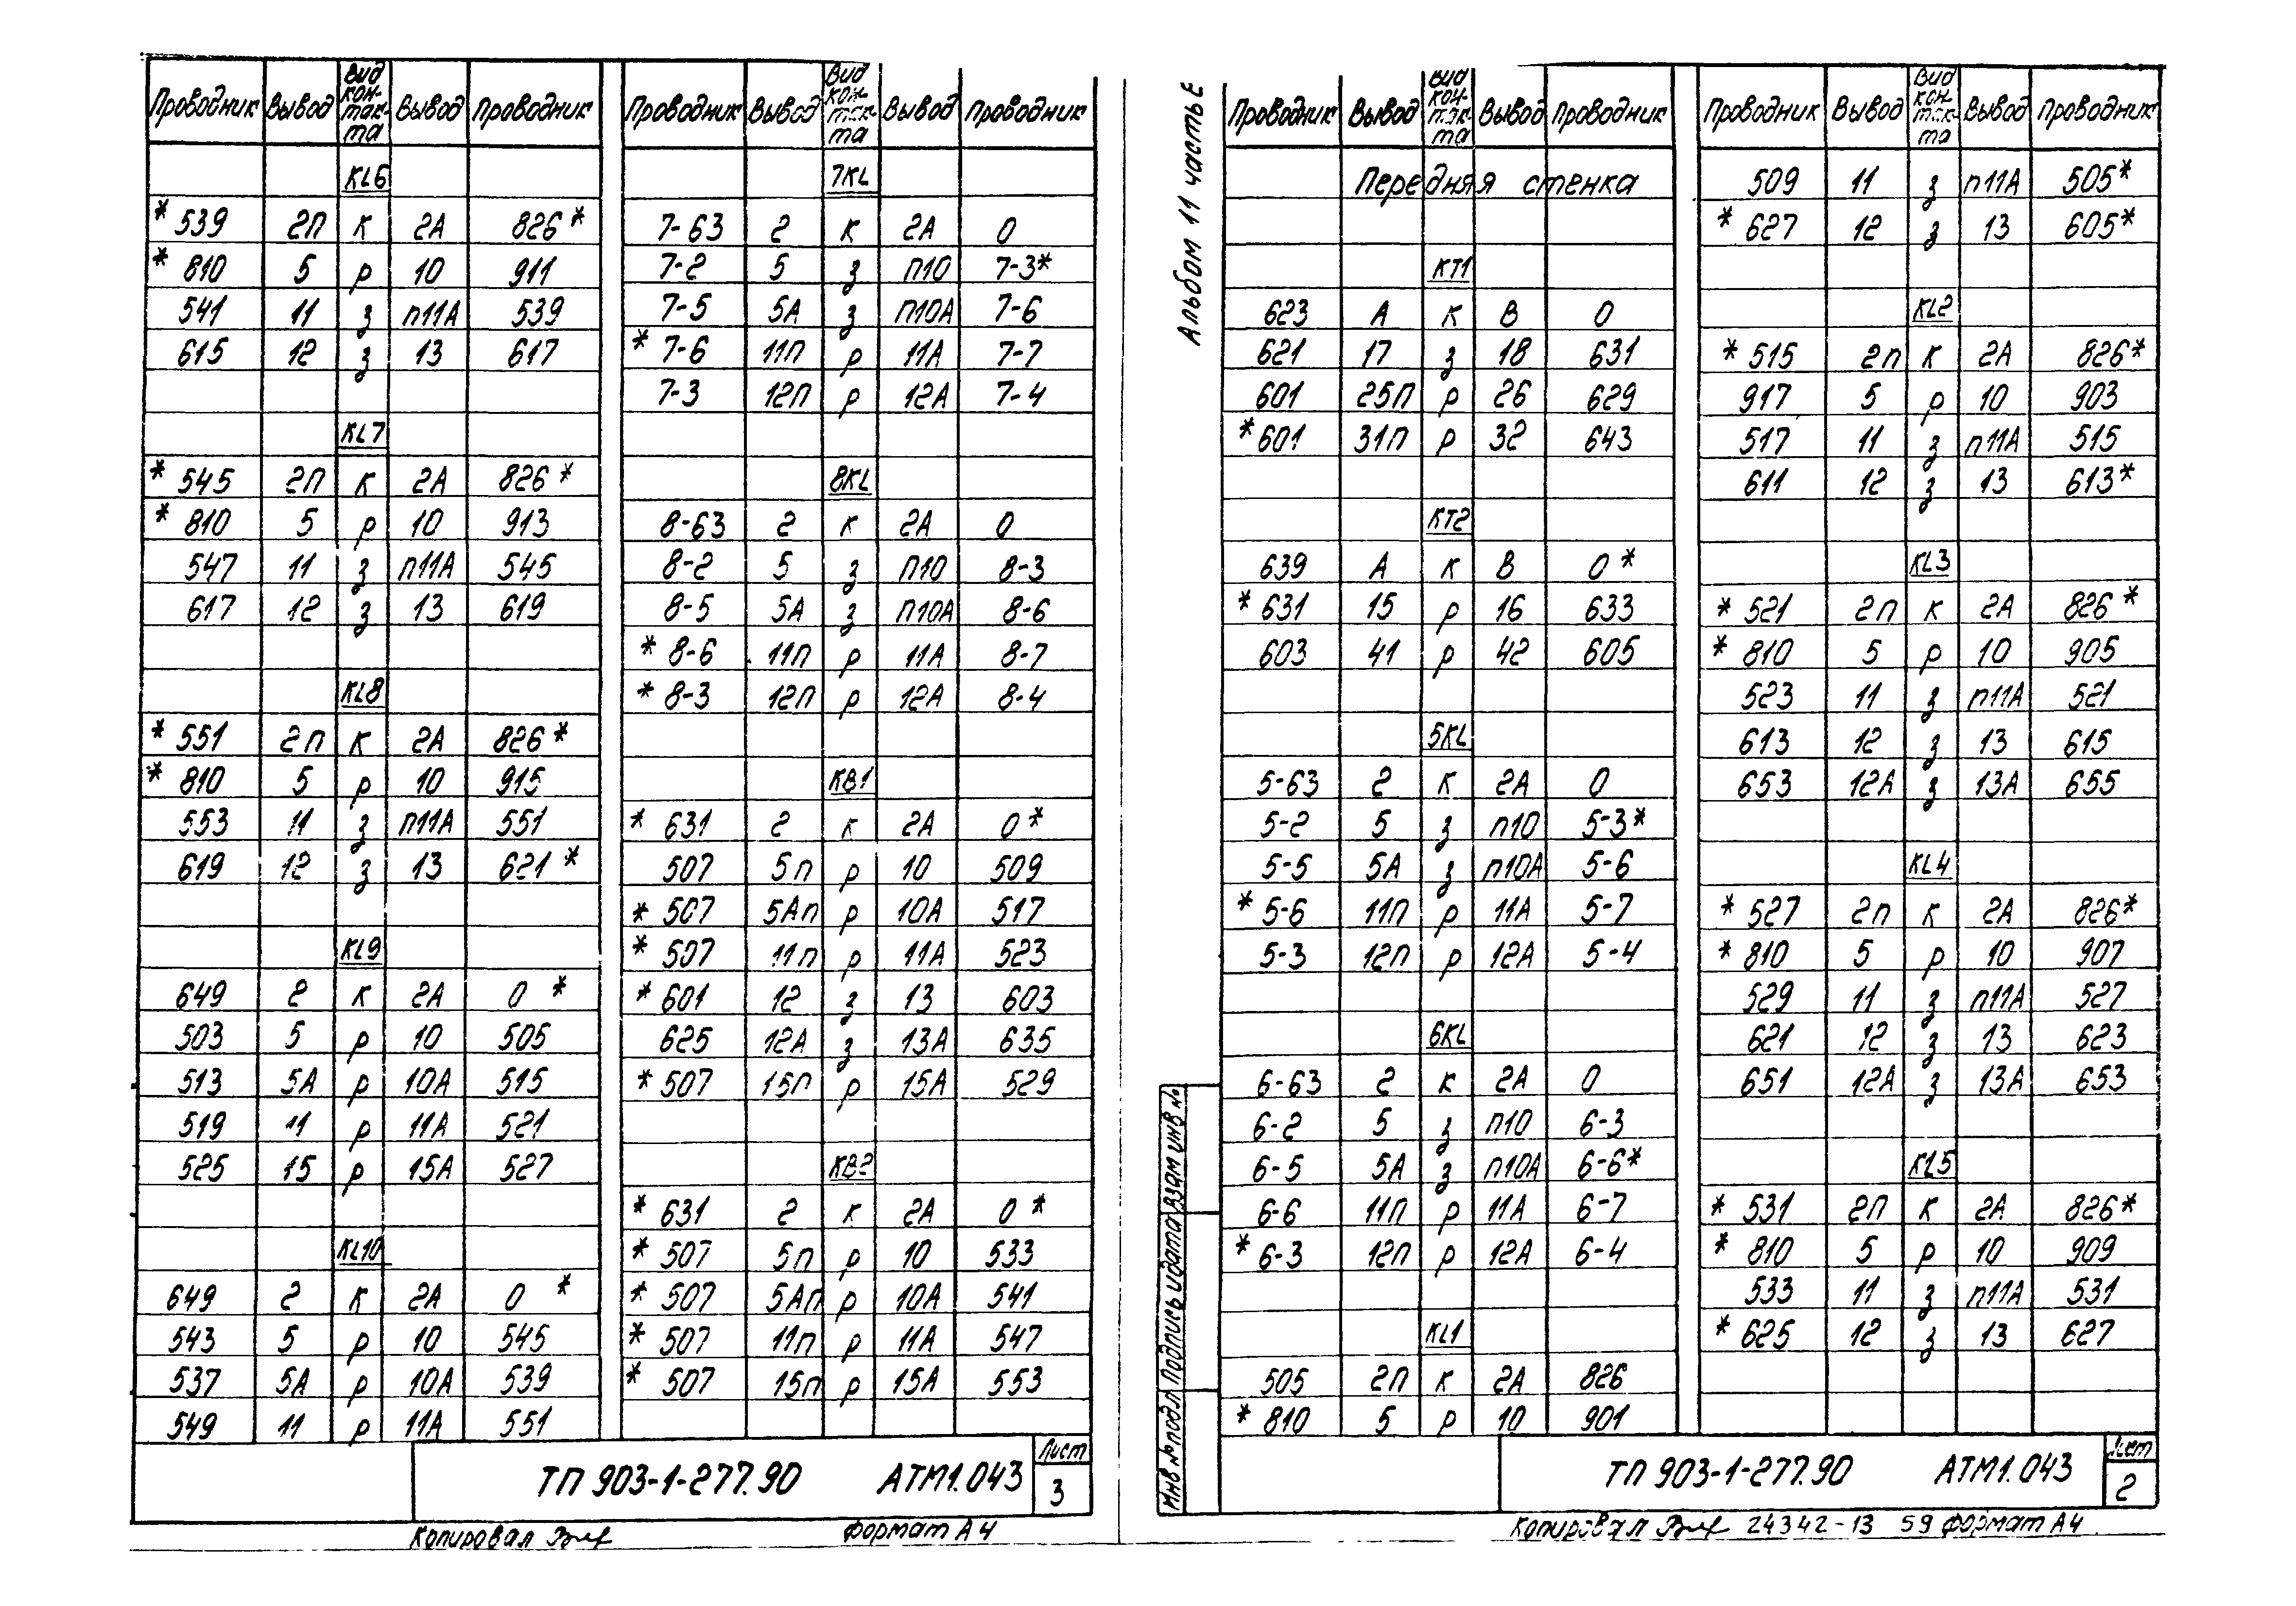 Проводник Вывод Вид кон-так-та Вывод Проводник
KL6
*539 2П к 2А 826*
*810 5 р 10 911
541 11 з п11А 539
615 12 з 13 617
KL7
*545 2П к 2А 826*
*810 5 р 10 913
547 11 з п11А 545
617 12 з 13 619
KL8
*551 2п к 2А 826*
*810 5 р 10 915
553 11 з п11А 551
619 12 з 13 621*
KL9
649 2 к 2А 0*
503 5 р 10 505
513 5А р 10А 515
519 11 р 11А 521
525 15 р 15А 527
KL10
649 2 к 2А 0*
543 5 р 10 545
537 5А р 10А 539
549 11 р 11А 551
Проводник Вывод Вид кон-так-та Вывод Проводник
7KL
7-63 2 к 2А 0
7-2 5 з П10 7-3*
7-5 5А з П10А 7-6
*7-6 11П р 11А 7-7
7-3 12П р 12А 7-4
8KL
8-63 2 к 2А 0
8-2 5 з П10 8-3
8-5 5А з П10А 8-6
*8-6 11П р 11А 8-7
*8-3 12П р 12А 8-4
KB1
*631 2 к 2А 0*
507 5п р 10 509
*507 5Ап р 10А 517
*507 11п р 11А 523
*601 12 з 13 603
625 12А з 13А 635
*507 15п р 15А 529
KB2
*631 2 к 2А 0*
*507 5п р 10 533
*507 5Ап р 10А 541
*507 11п р 11А 547
*507 15п р 15А 553
ТП 903-1-277.90 АТМ1.043
Лист
3
Копировал
Формат А4
Альбом 11 часть Е
Проводник Вывод Вид кон-так-та Вывод Проводник
Передняя стенка
KT1
623 А к В 0
621 17 з 18 631
601 25П р 26 629
*601 31П р 32 643
KT2
639 А к В 0*
*631 15 р 16 633
603 41 р 42 605
5KL
5-63 2 к 2А 0
5-2 5 з п10 5-3*
5-5 5А з п10А 5-6
*5-6 11П р 11А 5-7
5-3 12П р 12А 5-4
6KL
6-63 2 к 2А 0
6-2 5 з п10 6-3
6-5 5А з п10А 6-6*
6-6 11П р 11А 6-7
*6-3 12П р 12А 6-4
KL1
505 2П к 2А 826
*810 5 р 10 901
Проводник Вывод Вид кон-так-та Вывод Проводник
509 11 з п11А 505*
*627 12 з 13 605*
KL2
*515 2п к 2А 826*
917 5 р 10 903
517 11 з п11А 515
611 12 з 13 613*
KL3
*521 2п к 2А 826*
*810 5 р 10 905
523 11 з п11А 521
613 12 з 13 615
653 12А з 13А 655
KL4
*527 2п к 2А 826*
*810 5 р 10 907
529 11 з п11А 527
621 12 з 13 623
651 12А з 13А 653
KL5
*531 2П к 2А 826*
*810 5 р 10 909
533 11 з п11А 531
*625 12 з 13 627
Инв № подл Подпись и дата Взам инв №
ТП 903-1-277.90 АТМ1.043
Лист
2
Копировал 24342-13 59 Формат А4